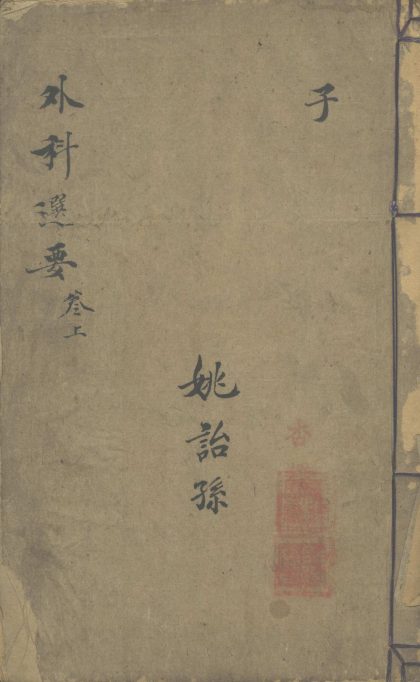 子
姚詒孫
外科選要
卷上